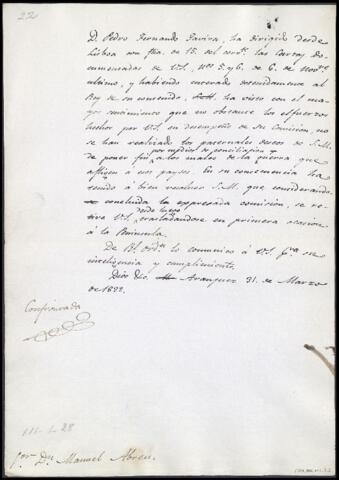 22
D. Pedro Fernando Gavira, ha dirigido desde
Lisboa con fha. de 15. del corr.te las cartas do-
cumentadas de V.S. nos 5. y 6. de 6. de Nov.re
ultimo, y habiendo enterado detenidamente al
Rey de su contenido, S.M. ha visto con el ma-
yor sentimiento que no obstante los esfuerzos
hechos por V.S. en desempeño de su Comision, no
se han realizado los paternales deseos de S.M.
por medios de conciliacion
de poner fin a los males de la guerra que
afligen á ese pays. En su consecuencia ha
tenido á bien resolver S.M. que considerando
concluida la espresada comision, se re-
desde luego
tire V.S. trasladandose en primera ocasion
á la Peninsula.
De Rl. ordn. lo comunico á V.S. pa. su
inteligencia y cumplimiento.
Dios &c. Aranjuez 31. de Marzo
de 1822.
Confrontada
111-1-28
Sor. Dn. Manuel Abreu.